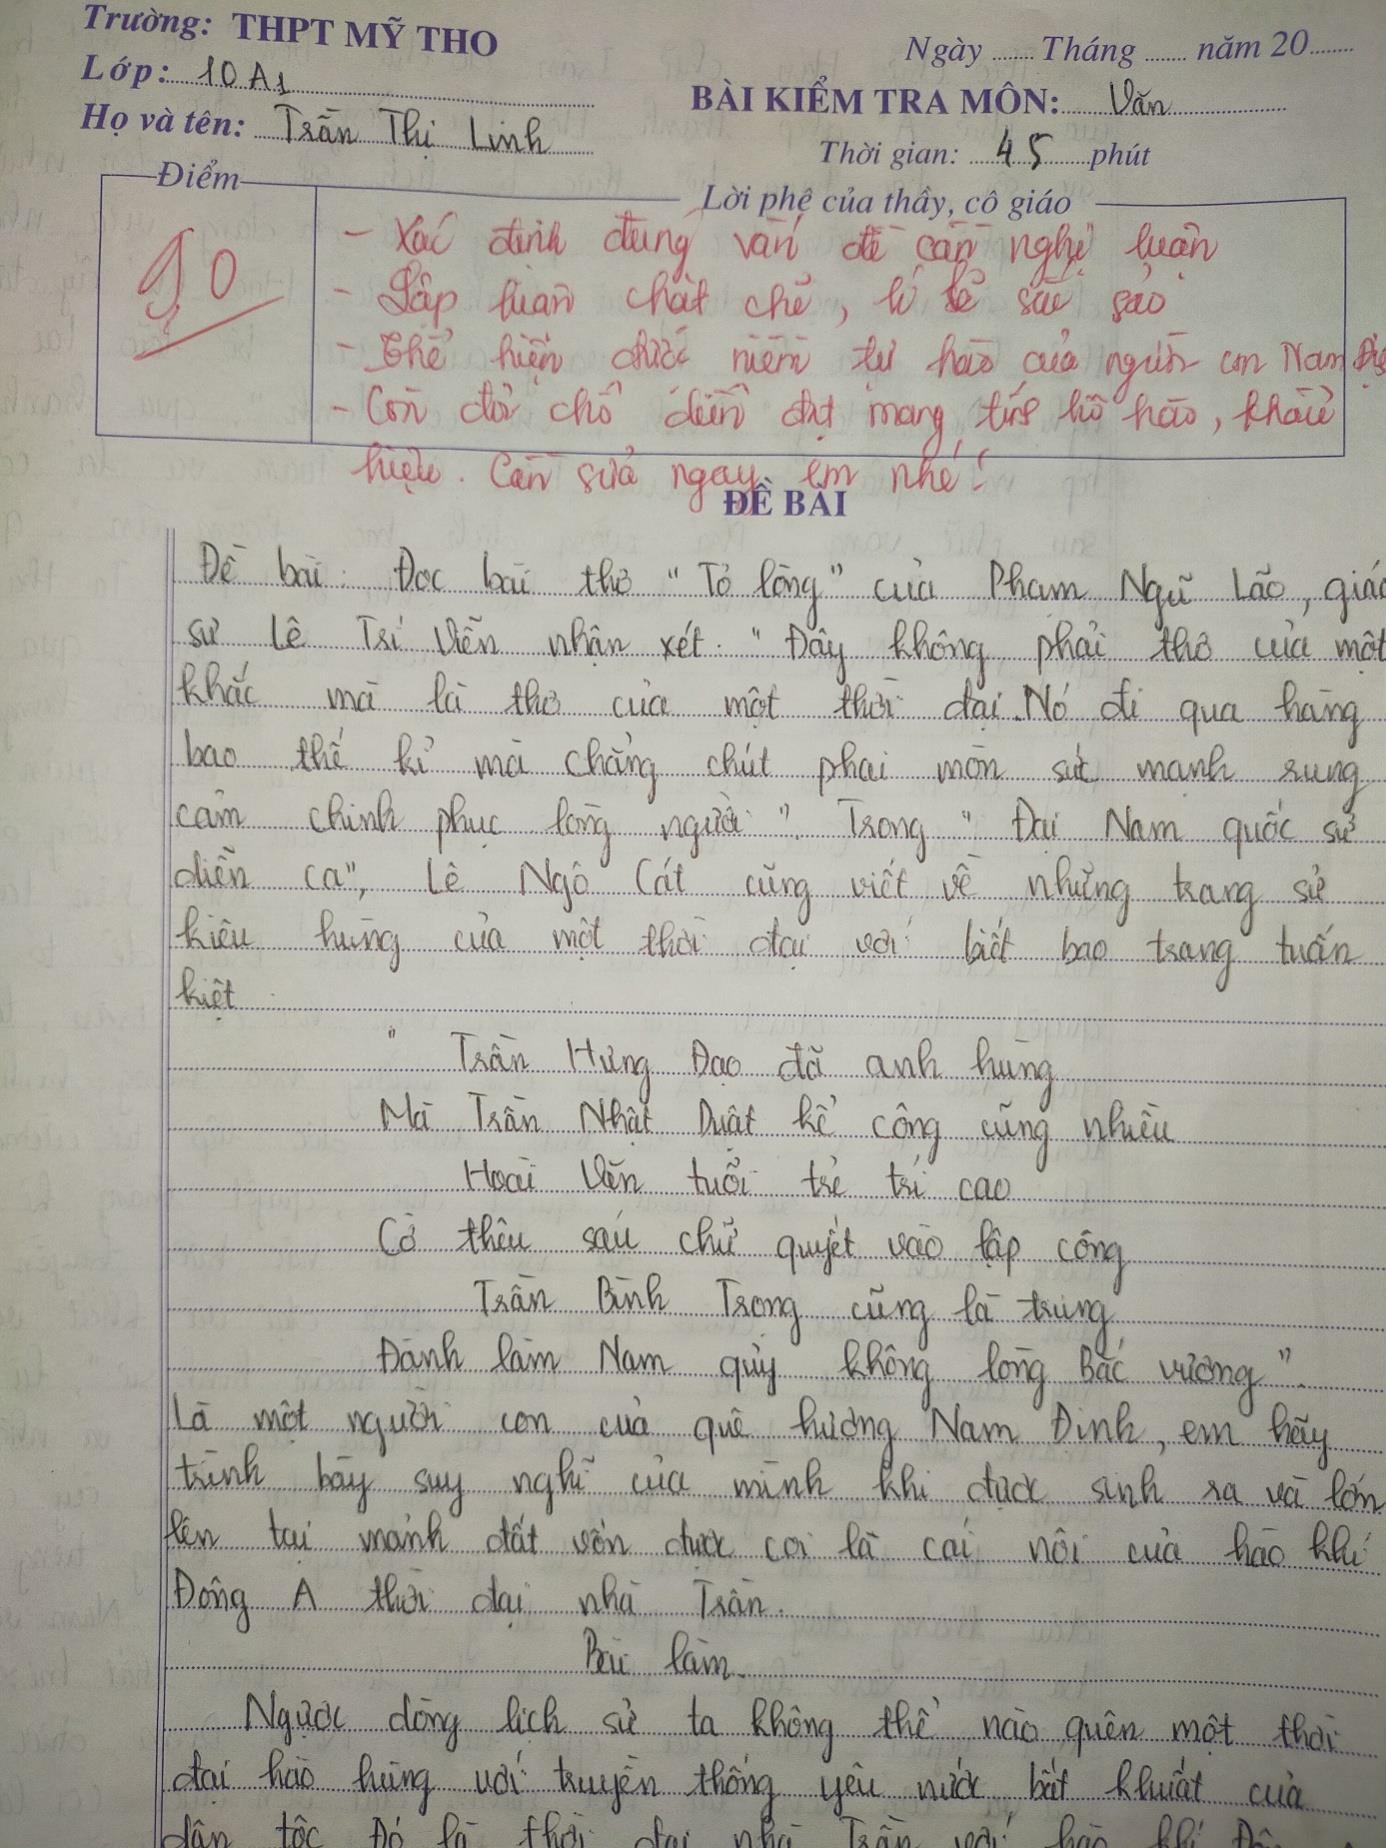 Trường: THPT MỸ THO
Ngày ....... Tháng ....... năm 20........
Lớp: 10A1
BÀI KIỂM TRA MÔN: Văn
Họ và tên: Trần Thị Linh
Thời gian: 45 phút
Điểm
Lời phê của thầy, cô giáo
9,0
- Xác định đúng vấn đề cần nghị luận
- Lập luận chặt chẽ, lí lẽ sắc sảo
- Thể hiện được niềm tự hào của người con Nam
- Còn đôi chỗ diễn đạt mang tính hô hào, khẩu
hiệu. Cần sửa ngay em nhé!
ĐỀ BÀI
Đề bài: Đọc bài thơ "Tỏ lòng" của Phạm Ngũ Lão, giáo
sư Lê Trí Viễn nhận xét: "Đây không phải thơ của một
khắc mà là thơ của một thời đại. Nó đi qua hàng
bao thế kỉ mà chẳng chút phai mòn sức mạnh rung
cảm chinh phục lòng người". Trong "Đại Nam quốc sử
diễn ca", Lê Ngô Cát cũng viết về những trang sử
kiêu hùng của một thời đại với biết bao trang tuấn
kiệt
"Trần Hưng Đạo đã anh hùng
Mà Trần Nhật Duật kể công cũng nhiều
Hoài Văn tuổi trẻ trí cao
Cờ thêu sáu chữ quyết vào lập công
Trần Bình Trọng cũng là trung
Đành làm Nam quỷ không lòng Bắc vương".
Là một người con của quê hương Nam Định, em hãy
trình bày suy nghĩ của mình khi được sinh ra và lớn
lên tại mảnh đất vốn được coi là cái nôi của hào khí
Đông A thời đại nhà Trần.
Bài làm.
Ngược dòng lịch sử ta không thể nào quên một thời
đại hào hùng với truyền thống yêu nước bất khuất của
dân tộc. Đó là thời đại nhà Trần với hào khí Đông